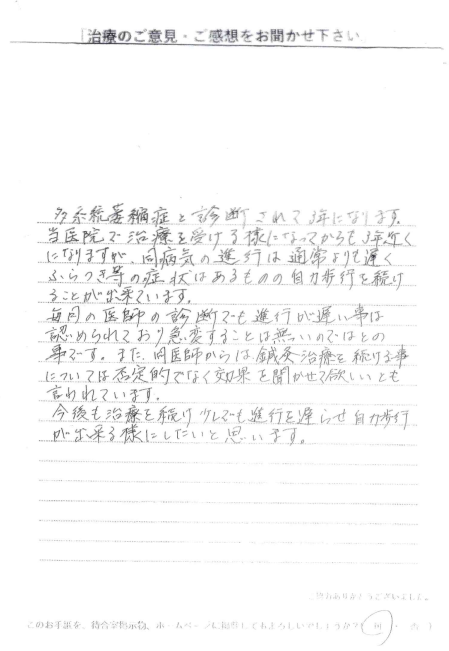 「治療のご意見・ご感想をお聞かせ下さい」
多系統萎縮症と診断されて3年になります。
当医院で治療を受ける様になってからも3年近く
になりますが、同病気の進行は通常よりも遅く
ふらつき等の症状はあるものの自力歩行を続け
ることが出来ています。
毎月の医師の診断でも進行が遅い事は
認められており急変することは無いのではとの
事です。また、同医師からは鍼灸治療を続ける事
については否定的でなく効果を聞かせて欲しいとも
言われています。
今後も治療を続け少しでも進行を遅らせ自力歩行
が出来る様にしたいと思います。
ご協力ありがとうございました。
このお手紙を、待合室掲示物、ホームページに掲載してもよろしいでしょうか？（可・否）